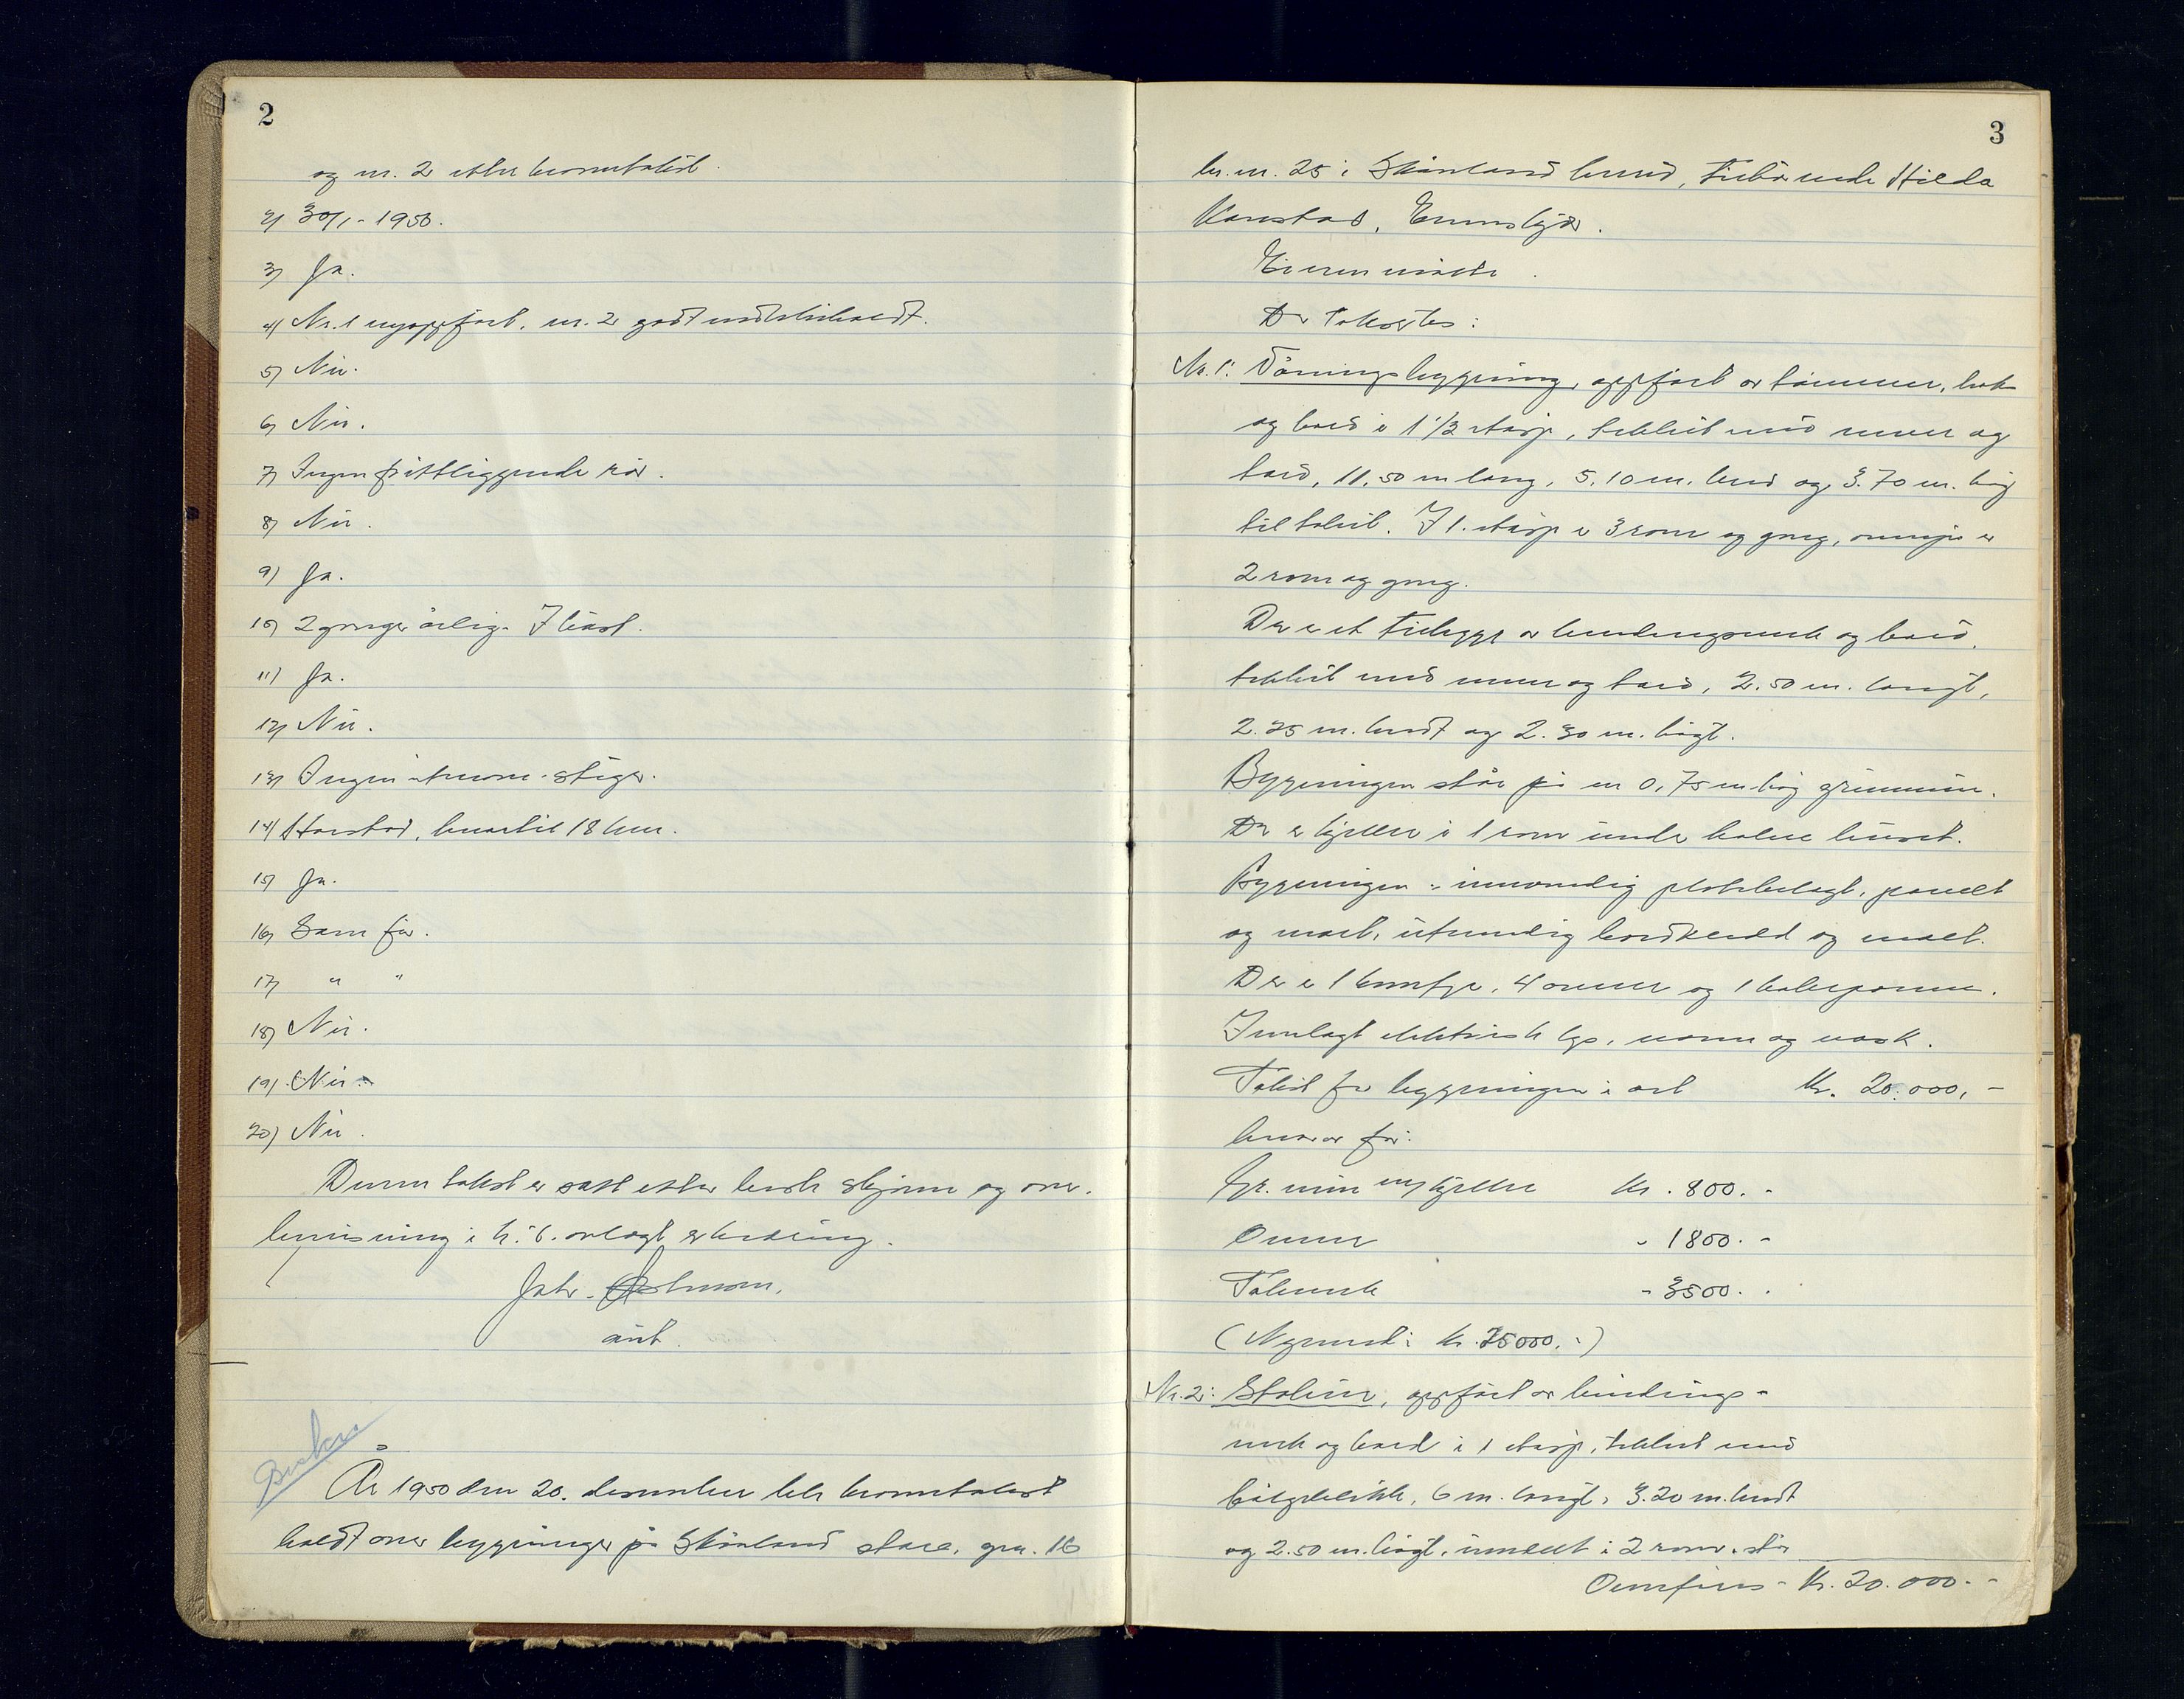 2
og nr. 2 etter branntakst.
2) 30/1 - 1950.
3) Ja.
4) Nr. 1 nyoppført, nr. 2 godt vedlikeholdt.
5) Nei.
6) Nei.
7) Ingen frittliggende rør.
8) Nei.
9) Ja.
10) 2 ganger årlig. I høst.
11) Ja.
12) Nei.
13) Ingen stiger.
14) Harstad, henved til 18 km.
15) Ja.
16) Som før.
17) " "
18) Nei.
19) Nei.
20) Nei.
Denne takst er satt etter beste skjønn og over-
bevisning i h. t. avlagt erklæring.
Johr.
aut.
År 1950 den 20. desember ble branntakst
holdt over bygninger på Skånland gnr. 16
3
br. nr. 25 i Skånland herred, tilhørende Hilda
Kanstad, Evenskjær.
Eieren møtte.
Der takseres:
Nr. 1: Våningsbygning, oppført av tømmer, bek
og bord i 1 1/2 etasje, tekket med never og
bord, 11.50 m lang, 5.10 m. bred og 3.70 m. høg
til takst. I 1. etasje er 3 rom og gang, ovenpå er
2 rom og gang.
Der er et tilbygg av bindingsverk og bord,
tekket med never og bord, 2.50 m. langt,
2.25 m. bredt og 2.30 m. høgt.
Bygningen står på en 0,75 m høg grunnmur.
Der er kjeller i 1 rom under halve huset.
Bygningen er innvendig platebelagt, panelt
og malt, utvendig bordkledd og malt.
Der er 1 komfyr, 4 ovner og 1 bakerpanne.
Innlagt elektrisk lys, vann og vask.
Takst for bygningen i alt Kr. 20.000,-
hvorav for:
Gr. mur m/kjeller Kr. 800.-
Ovner " 1800.-
Tølverk - 3500.-
(Nyverdi: kr. 25000.-)
Nr. 2: Stabur, oppført av bindings-
verk og bord i 1 etasje, tekket med
bølgeblikk, 6 m. langt, 3.20 m. bredt
og 2.50 m. høgt, innredet i 2 rom. står
Overføres - Kr. 20.000.-